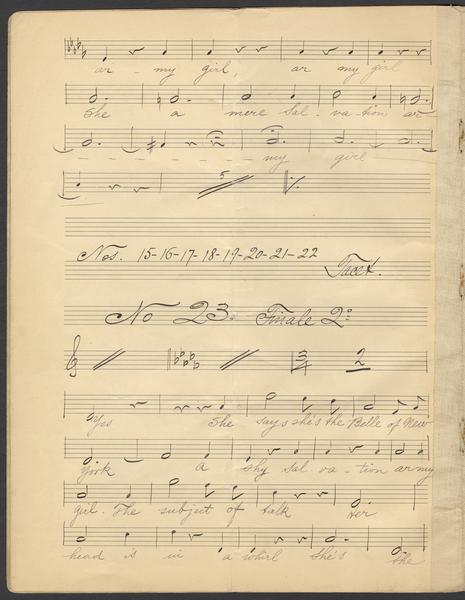 ar - my girl, ar my girl
She a mere Sal - va - tion ar
my girl
5
Nos. 15-16-17-18-19-20-21-22
Tacet.
No 23. Finale 2º
3/4 2
Yes She says she's the Belle of New
York a shy Sal - va - tion army
girl. The subject of talk Her
head is in a whirl She's the